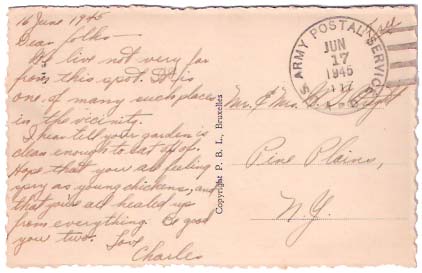 16 June 1945
Dear folks—
We live not very far
from this spot. It is
one of many such places
in the vicinity.
I hear tell your garden is
clean enough to eat up of.
Hope that you're all feeling
spry as young chickens, and
that you're all healed up
from everything. Be good
you two. Love
Charles
Copyright P. B. L., Bruxelles
U.S. ARMY POSTAL SERVICE
JUN
17
1945
Mr. & Mrs.
Pine Plains,
N.Y.